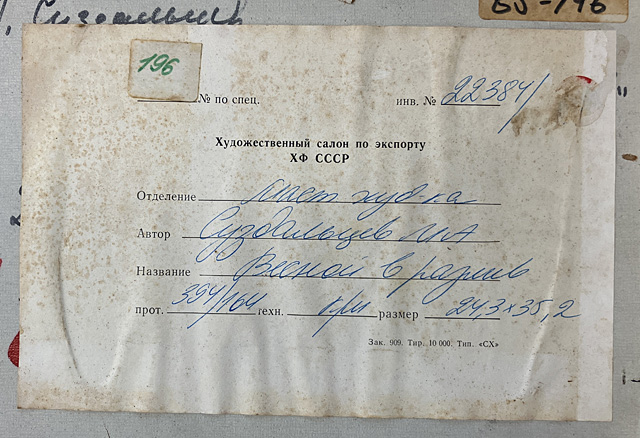 Суздальцев
БЭ-796
196
№ по спец. инв. № 22384/
Художественный салон по экспорту
ХФ СССР
Отделение Маст худ-ка
Автор Суздальцев МА
Название Весной в разлив
прот. 394/164 техн. х/м размер 24,3×35,2
Зак. 909. Тир. 10 000. Тип. «СХ»